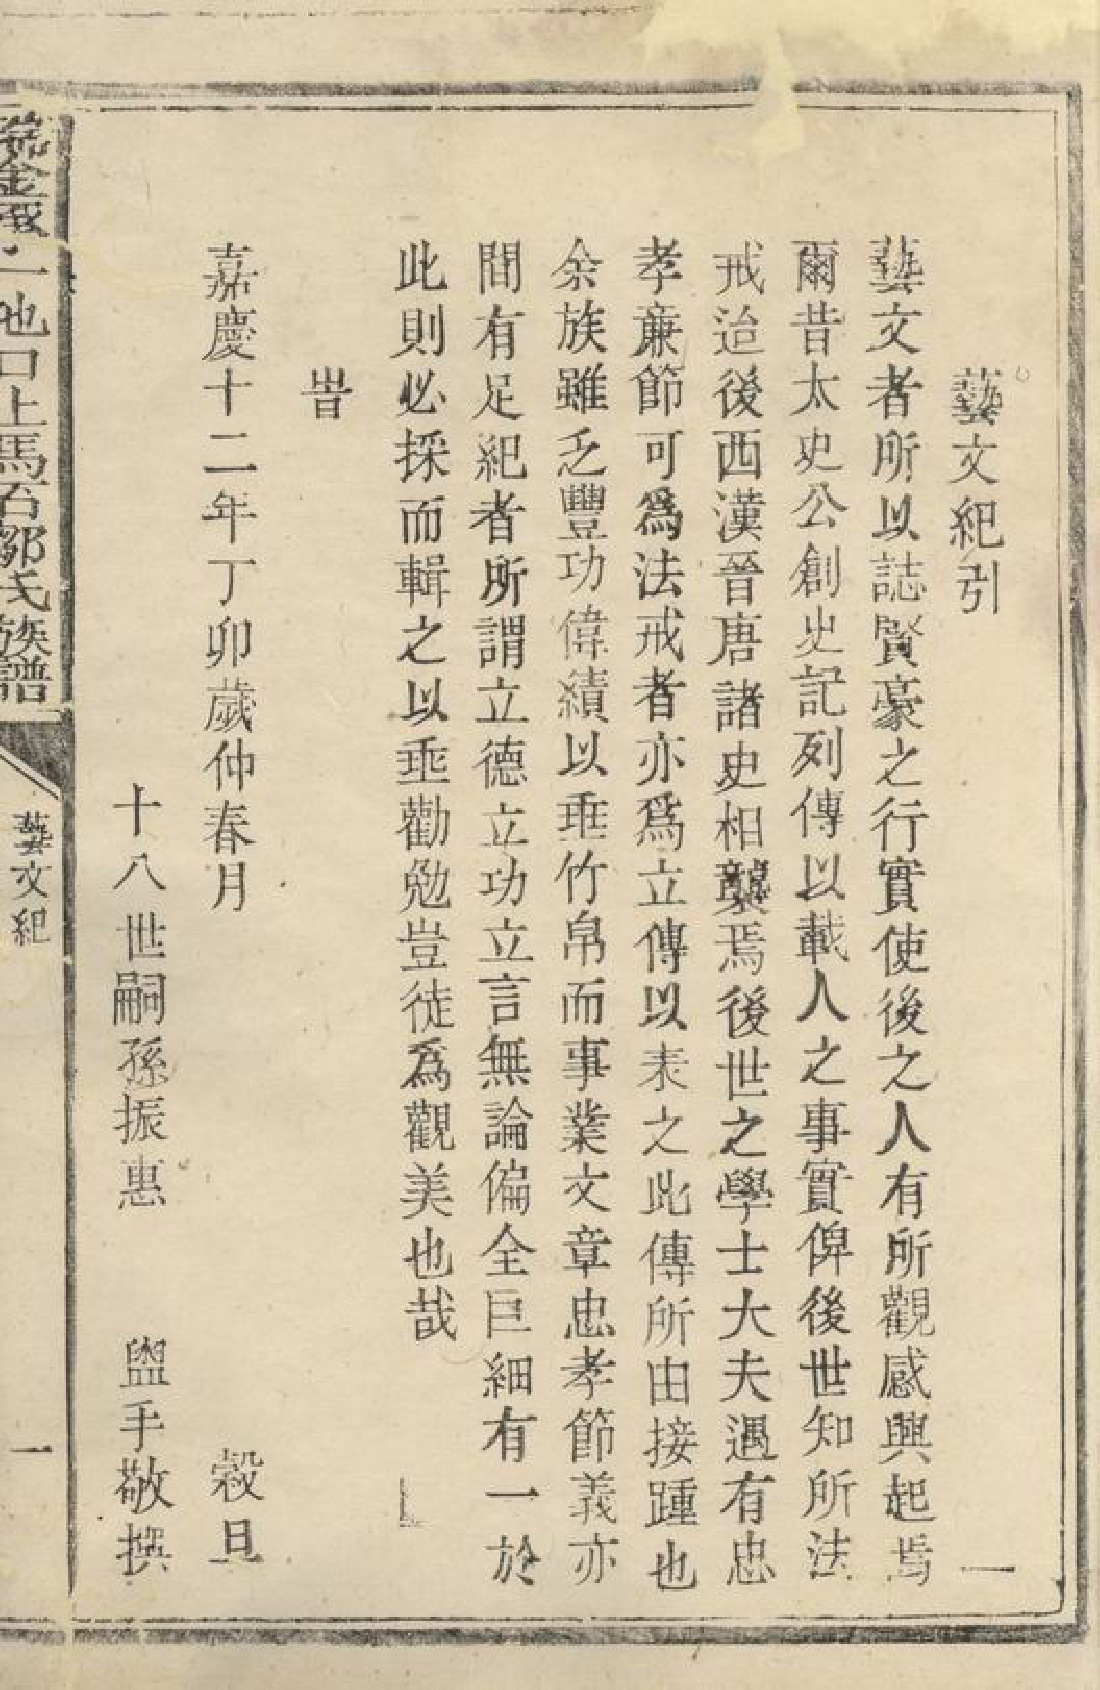 藝文紀引
藝文者所以誌賢豪之行實使後之人有所觀感興起焉
爾昔太史公創史記列傳以載人之事實俾後世知所法
戒迨後西漢晉唐諸史相襲焉後世之學士大夫遇有忠
孝亷節可爲法戒者亦爲立傳以表之此傳所由接踵也
余族雖乏豐功偉績以垂竹帛而事業文章忠孝節義亦
間有足紀者所謂立德立功立言無論偏全巨細有一於
此則必採而輯之以垂勸勉豈徒爲觀美也哉
旹
嘉慶十二年丁卯歲仲春月 穀旦
十八世嗣孫振惠 盥手敬撰
一地口上馬石鄒氏族譜
藝文紀
一